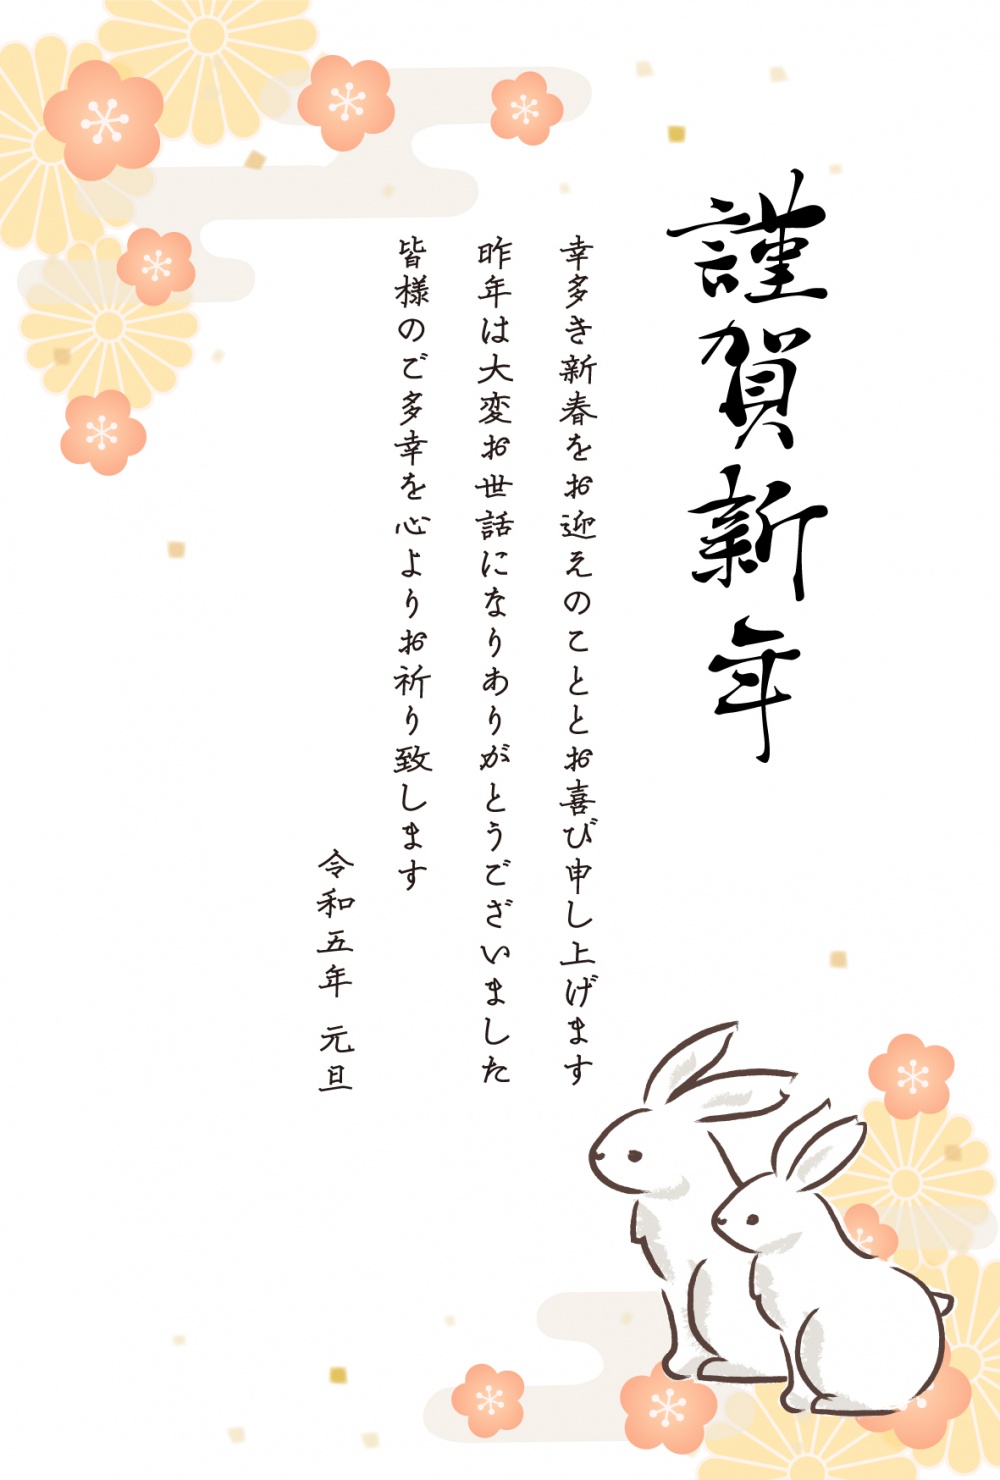 謹賀新年
幸多き新春をお迎えのこととお喜び申し上げます
昨年は大変お世話になりありがとうございました
皆様のご多幸を心よりお祈り致します
令和五年 元旦